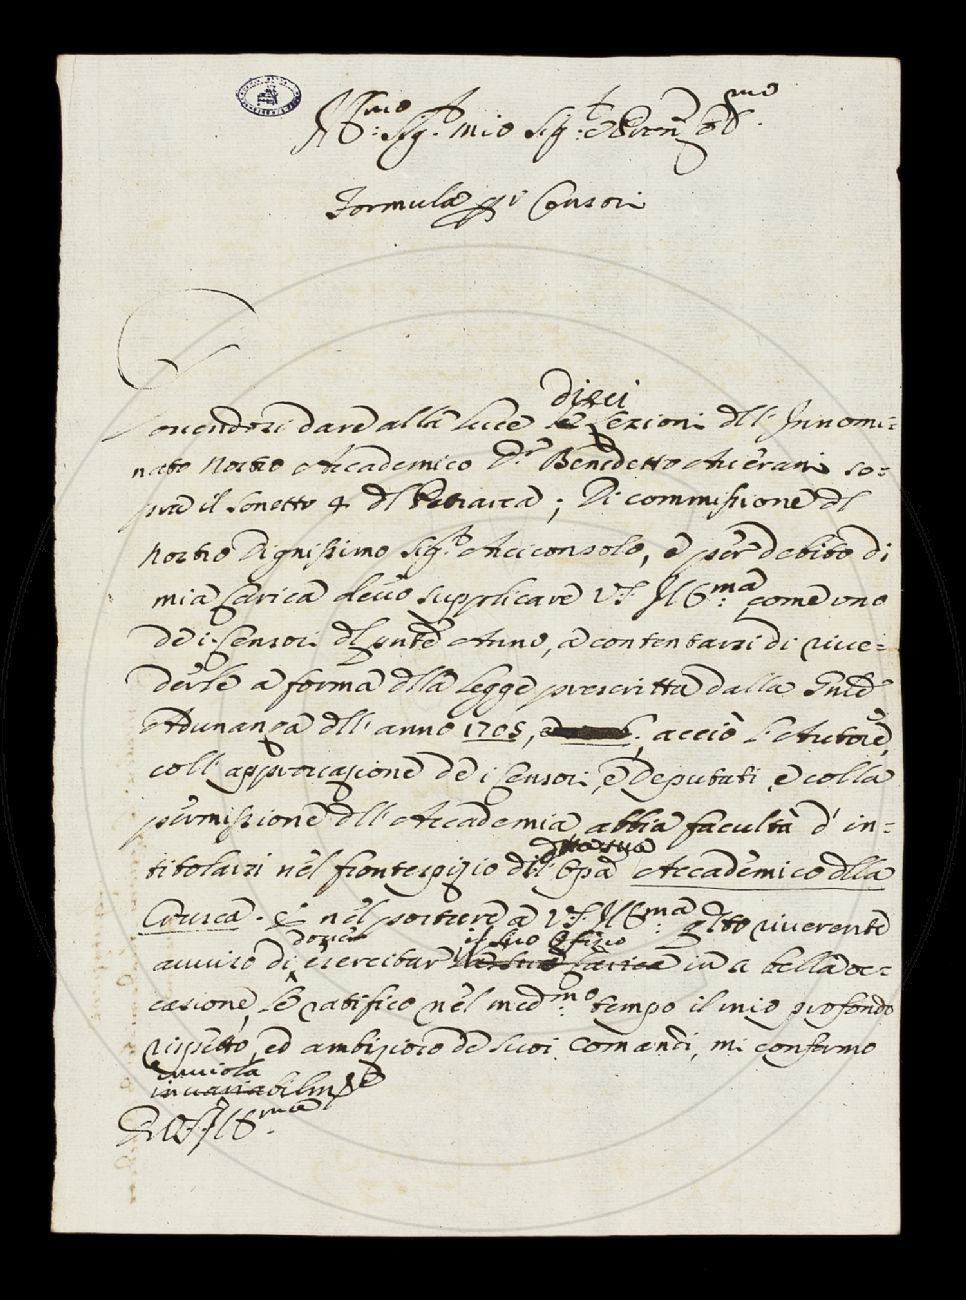 Ill:mo Sig.re mio Sig.re e Pron Col.mo
Formula pr i Censori
dieci
Dovendosi dare alla luce le Lezioni dll' Innomi=
nato nostro Accademico Dr Benedetto Averani so=
pra il sonetto 4 dl Petrarca; Di commissione dl
nostro Dignissimo Sig.re Arciconsolo, e per debito di
mia carica devo supplicare V.S. Ill:ma come uno
de i Censori dl pnte Anno, a contentarsi di rive=
derle a forma dlla legge prescritta dalla Gnid
Adunanza dll' anno 1705, acciò l'Autore,
coll' approvazione de i Censori, e Deputati, e colla
permissione dll' Accademia abbia facultà d' in=
titolarsi nel frontespizio dll' Opa Accademico dlla
Crusca. E nel portare a V.S. Ill:ma qsto riverente
il suo Ofizio
avviso di esercitar la sua carica in sì bella oc=
casione, le ratifico nel med:mo tempo il mio profondo
rispetto, ed ambizioso de suoi comandi, mi confermo
invariabilmte
Di V.S. Ill:ma